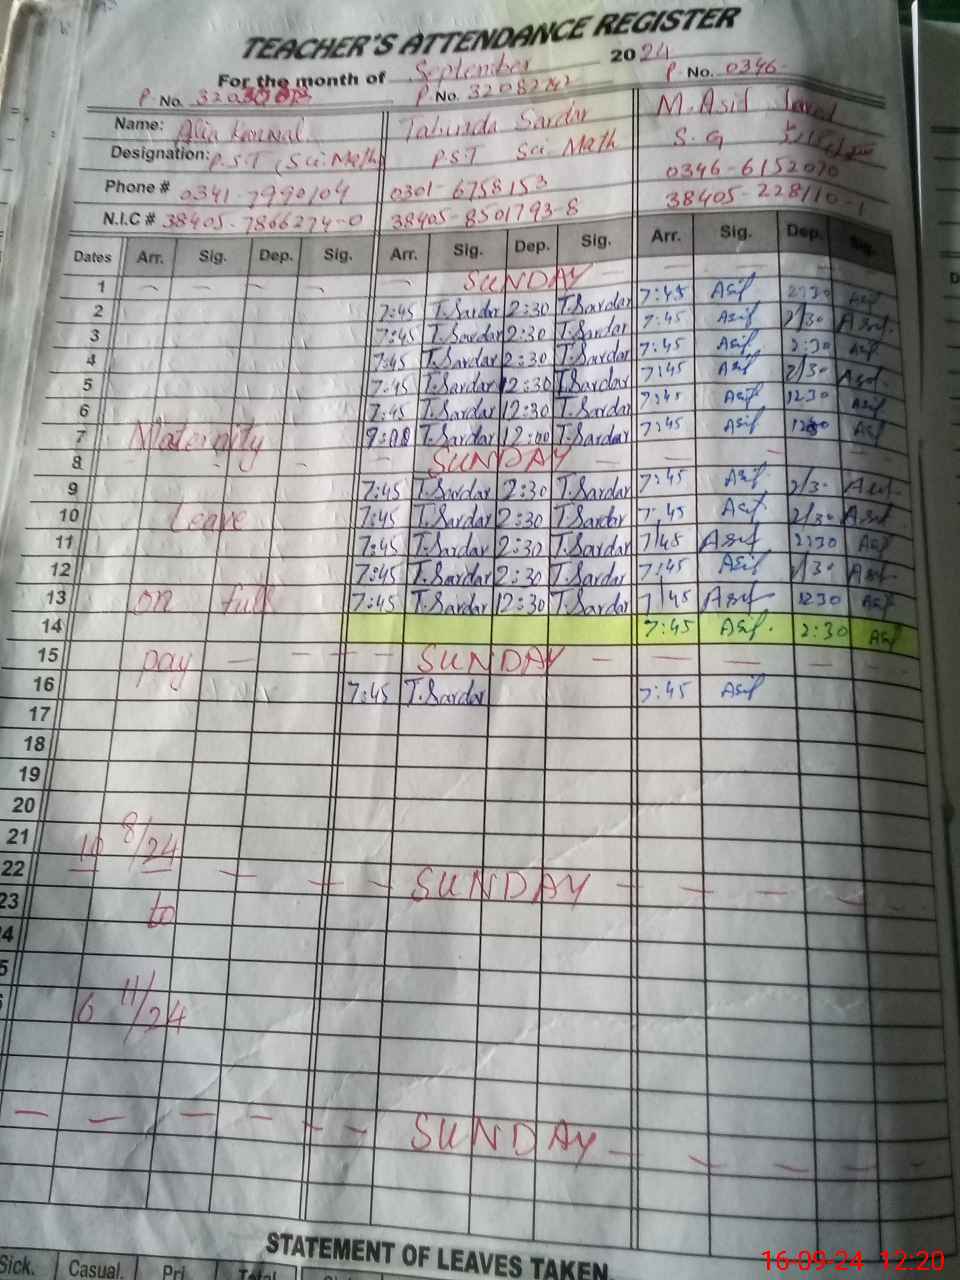 TEACHER'S ATTENDANCE REGISTER
For the month of September 2024
P. No. P. No. P. No. 0346-
Name: Alia Kanwal Tabinda Sardar M. Asif
Designation: P.S.T (Sci Math) P.S.T Sci Math S.G
Phone # 0341-7990104 0301-6758153 0346-6152070
N.I.C # 38405-7866274-0 38405-8501793-8 38405-228110-1
Dates Arr. Sig. Dep. Sig. Arr. Sig. Dep. Sig. Arr. Sig. Dep. Sig.
1 SUNDAY
2 7:45 T.Sardar 2:30 T.Sardar 7:45 Asif 2:30 Asif
3 7:45 T.Sardar 2:30 T.Sardar 7:45 Asif 2/30 Asif
4 7:45 T.Sardar 2:30 T.Sardar 7:45 Asif 2:30 Asif
5 7:45 T.Sardar 12:30 T.Sardar 7:45 Asif 2/30 Asif
6 7:45 T.Sardar 12:30 T.Sardar 7:45 Asif 12:30 Asif
7 Maternity T.Sardar 12:00 T.Sardar 7:45 Asif Asif
8 SUNDAY
9 7:45 T.Sardar 2:30 T.Sardar 7:45 Asif 2/30 Asif
10 Leave 7:45 T.Sardar 2:30 T.Sardar 7:45 Asif 2/30 Asif
11 7:45 T.Sardar 2:30 T.Sardar 7/45 Asif 2:30 Asif
12 7:45 T.Sardar 2:30 T.Sardar 7:45 Asif 2/30 Asif
13 on full 7:45 T.Sardar 12:30 T.Sardar 7/45 Asif 12:30 Asif
14 7:45 Asif. 2:30 Asif
15 pay SUNDAY
16 7:45 T.Sardar 7:45 Asif
17
18
19
20
21 8/24
22 SUNDAY
23 to
4
5
6 11/24
SUNDAY
STATEMENT OF LEAVES TAKEN.
Sick. Casual. Pri. Total
16-09-24 12:20